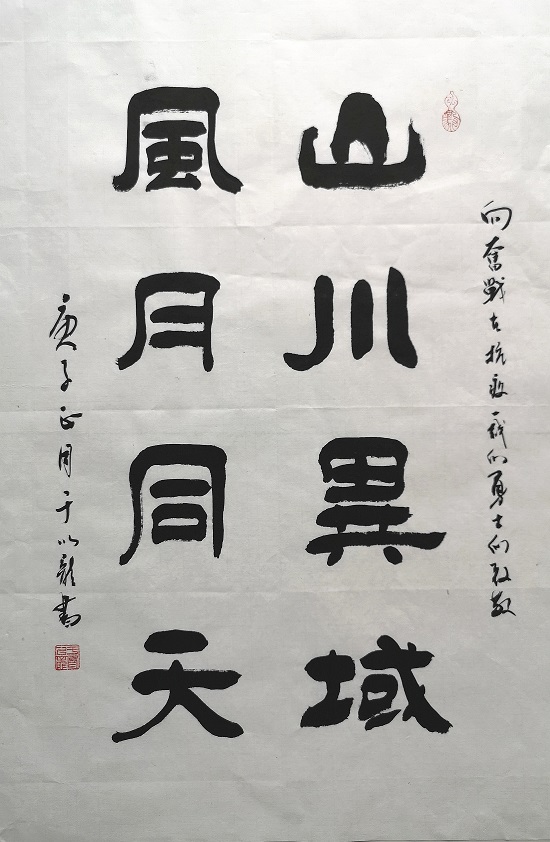 向奮戰在抗疫一线的勇士们致敬
山川異域
風月同天
庚子正月于書